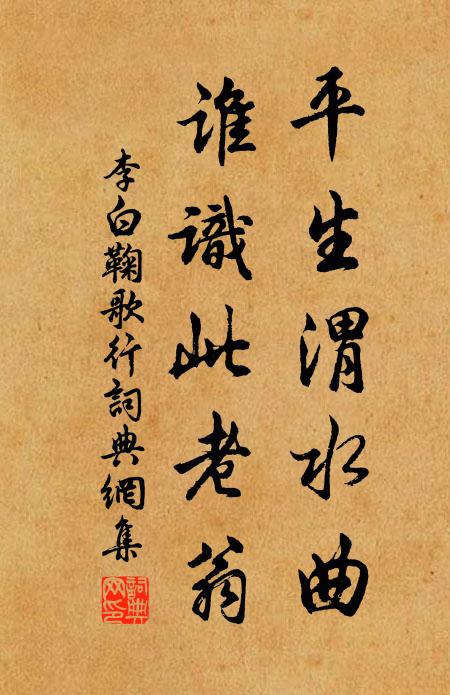 平生渭水曲
誰識此老翁
李白鞠歌行詞典網集
詞典
网印